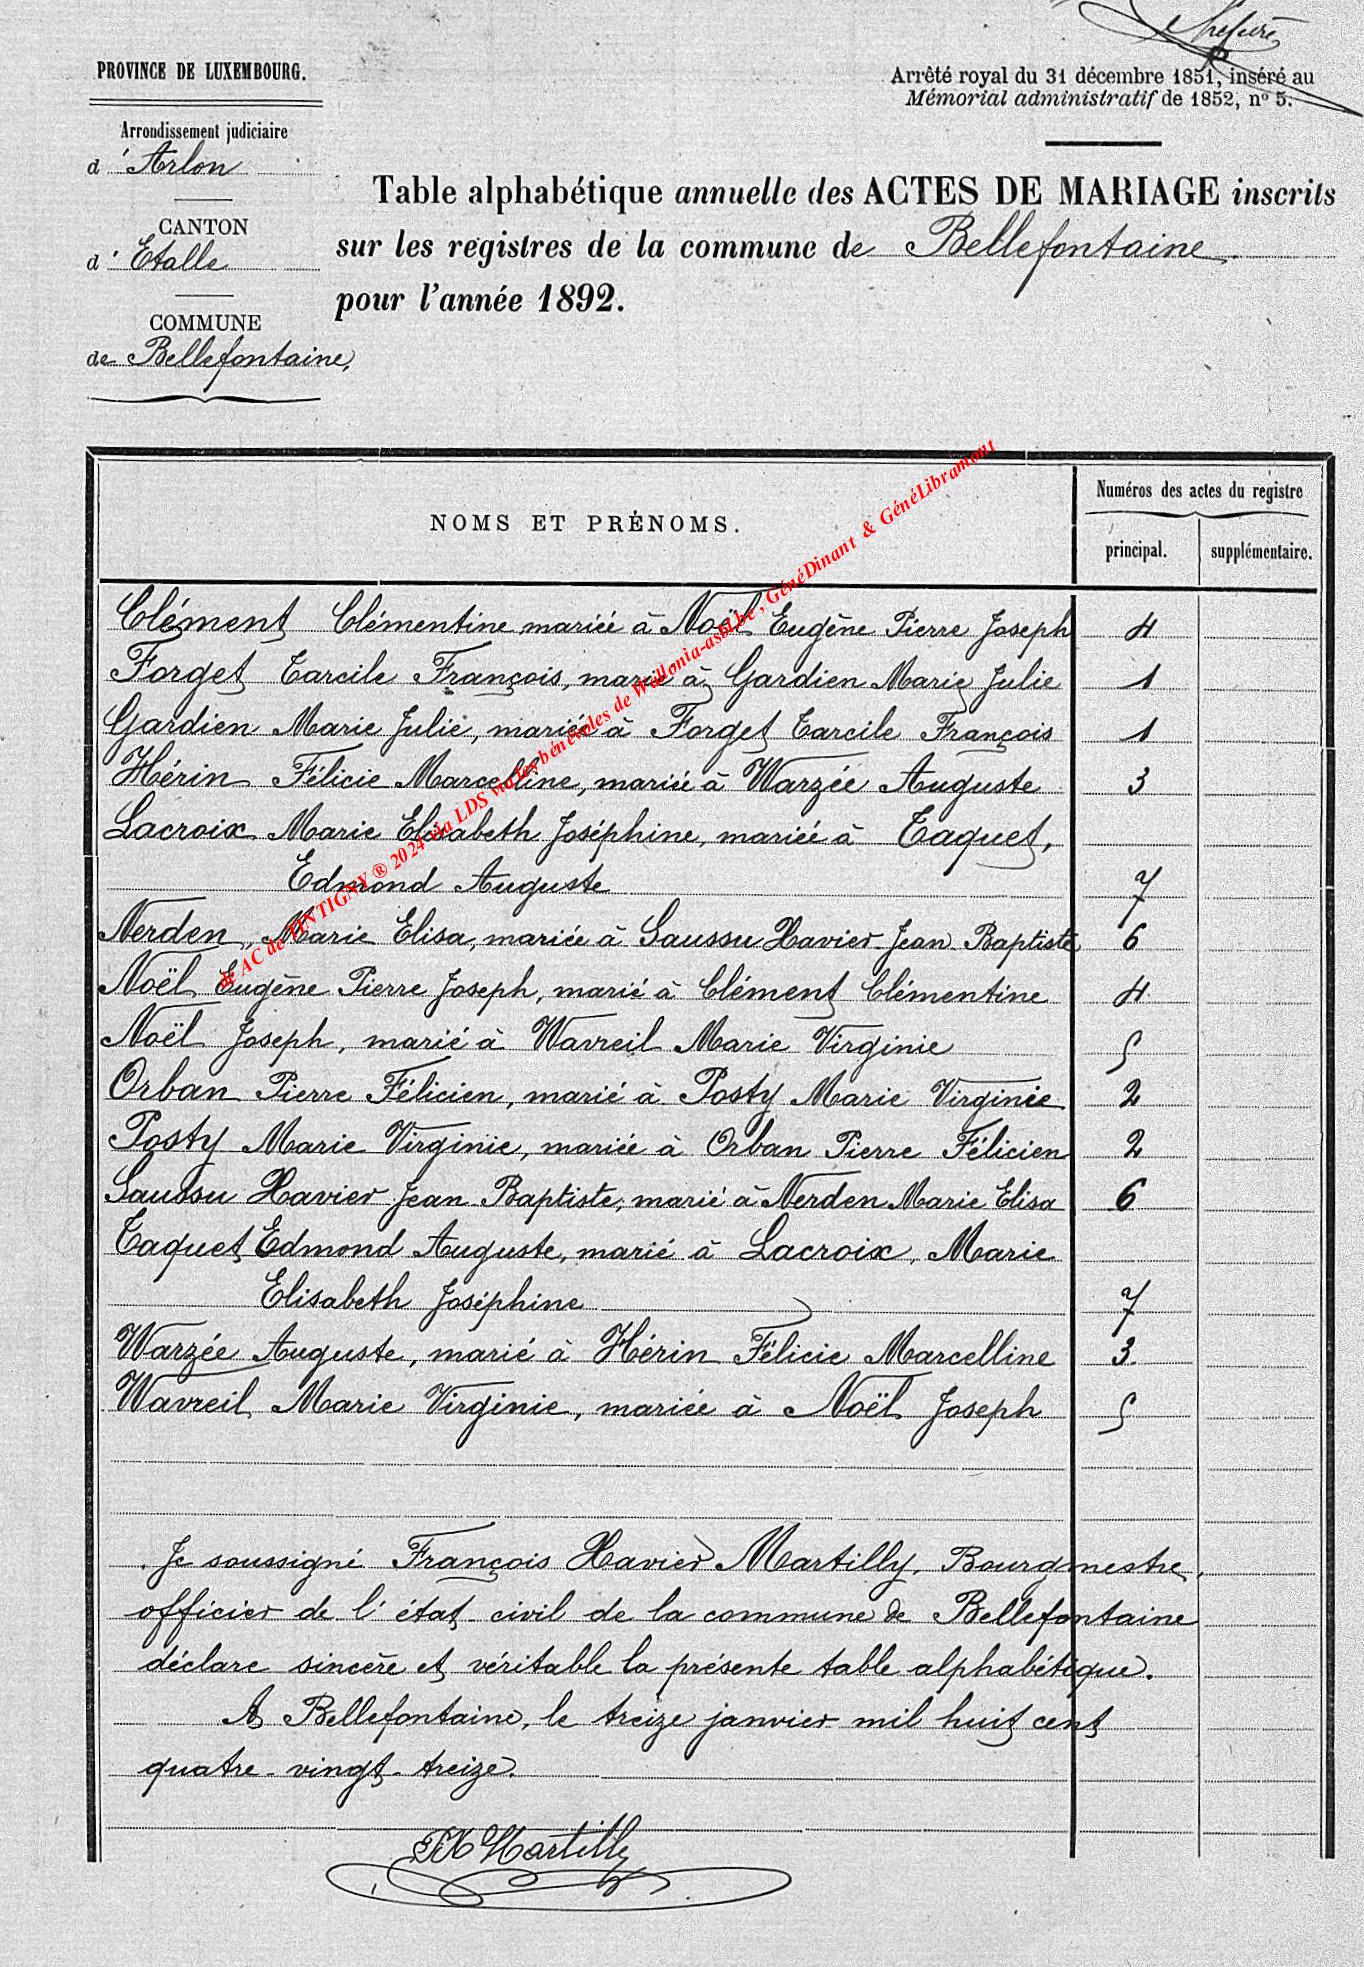 PROVINCE DE LUXEMBOURG.
Arrondissement judiciaire
d'Arlon
CANTON
d'Etalle
COMMUNE
de Bellefontaine,
Arrêté royal du 31 décembre 1851, inséré au
Mémorial administratif de 1852, nº 5.
Table alphabétique annuelle des ACTES DE MARIAGE inscrits
sur les registres de la commune de Bellefontaine.
pour l'année 1892.
NOMS ET PRÉNOMS.
Numéros des actes du registre
principal. supplémentaire.
Clément Clémentine mariée à Noël Eugène Pierre Joseph 4
Forget Tarcile François, marié à Gardien Marie Julie 1
Gardien Marie Julie, mariée à Forget Tarcile François 1
Hérin Félicie Marcelline, mariée à Warzée Auguste 3
Lacroix Marie Elisabeth Joséphine, mariée à Taquet,
Edmond Auguste 7
Nerden, Marie Elisa, mariée à Saussu Xavier Jean Baptiste 6
Noël Eugène Pierre Joseph, marié à Clément Clémentine 4
Noël Joseph, marié à Wavreil Marie Virginie 5
Orban Pierre Félicien, marié à Posty Marie Virginie 2
Posty Marie Virginie, mariée à Orban Pierre Félicien 2
Saussu Xavier Jean Baptiste, marié à Nerden Marie Elisa 6
Taquet Edmond Auguste, marié à Lacroix, Marie
Elisabeth Joséphine 7
Warzée Auguste, marié à Hérin Félicie Marcelline 3
Wavreil Marie Virginie, mariée à Noël Joseph 5
Je soussigné François Xavier Martilly, Bourgmestre,
officier de l'état civil de la commune de Bellefontaine
déclare sincère et véritable la présente table alphabétique.
A Bellefontaine, le treize janvier mil huit cent
quatre-vingt-treize.
FX Martilly
de AC de TINTIGNY ® 2024 via LDS via les bénévoles de Wallonia-asbl.be, GénéDinant & GénéLibramont